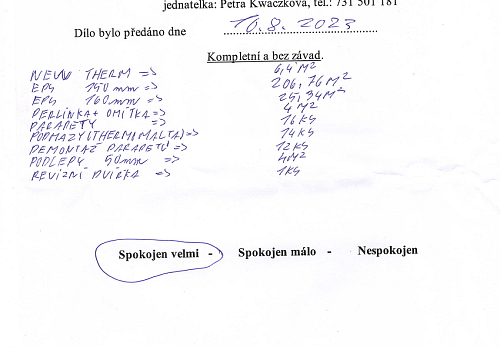 jednatelka: Petra Kwaczková, tel.: 731 501 181
Dílo bylo předáno dne 10.8.2023
Kompletní a bez závad.
NEW THERM => 6,4 M²
EPS 140 mm => 206,76 M²
EPS 160 mm => 25,34 M²
PERLINKA + OMÍTKA => 4 M²
PARAPETY => 16 KS
PODMAZY (THERMOMALTA) => 14 KS
DEMONTAŽ PARAPETŮ => 12 KS
PODLEPY 50 mm => 4 M²
REVIZNÍ DVÍŘKA => 1 KS
Spokojen velmi - Spokojen málo - Nespokojen